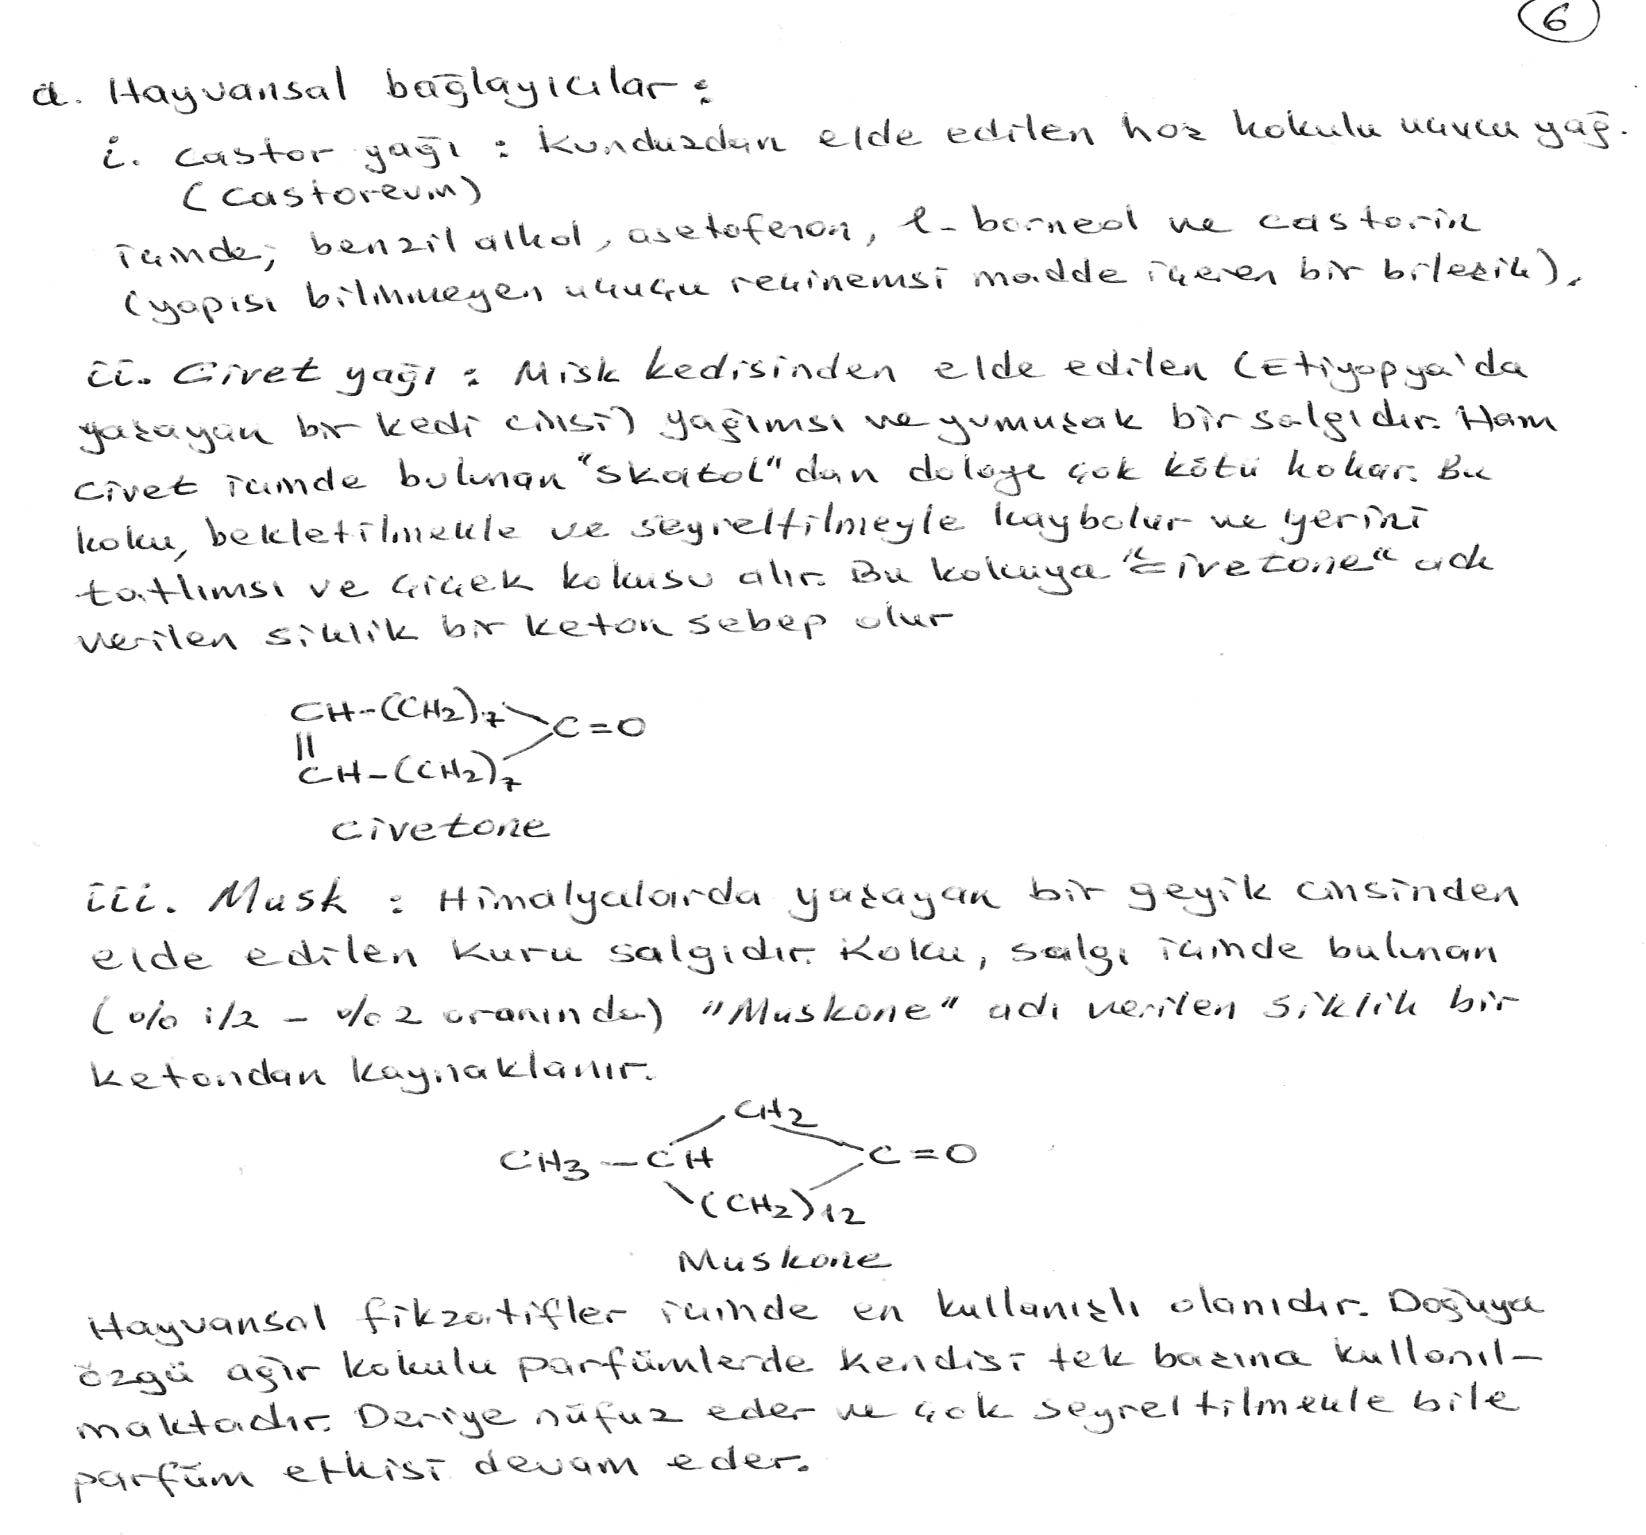 6
a. Hayvansal bağlayıcılar :
i. Castor yağı : Kunduzdan elde edilen hoş kokulu uçucu yağ.
(Castoreum)
içinde; benzil alkol, asetofenon, l-borneol ve castorin
(yapısı bilinmeyen uçucu reçinemsi madde içeren bir bileşik).
ii. Civet yağı : Misk kedisinden elde edilen (Etiyopya'da
yaşayan bir kedi cinsi) yağımsı ve yumuşak bir salgıdır. Ham
civet içinde bulunan "skatol" dan dolayı çok kötü kokar. Bu
koku, bekletilmekle ve seyreltilmeyle kaybolur ve yerini
tatlımsı ve çiçek kokusu alır. Bu kokuya "civetone" adı
verilen siklik bir keton sebep olur
CH-(CH2)7
C=O
||
CH-(CH2)7
civetone
iii. Musk : Himalyalarda yaşayan bir geyik cinsinden
elde edilen kuru salgıdır. Koku, salgı içinde bulunan
(% 1/2 - % 2 oranında) "Muskone" adı verilen siklik bir
ketondan kaynaklanır.
CH2
CH3-CH C=O
(CH2)12
Muskone
Hayvansal fikzatifler içinde en kullanışlı olanıdır. Doğuya
özgü ağır kokulu parfümlerde kendisi tek başına kullanıl-
maktadır. Deriye nüfuz eder ve çok seyreltilmekle bile
parfüm etkisi devam eder.